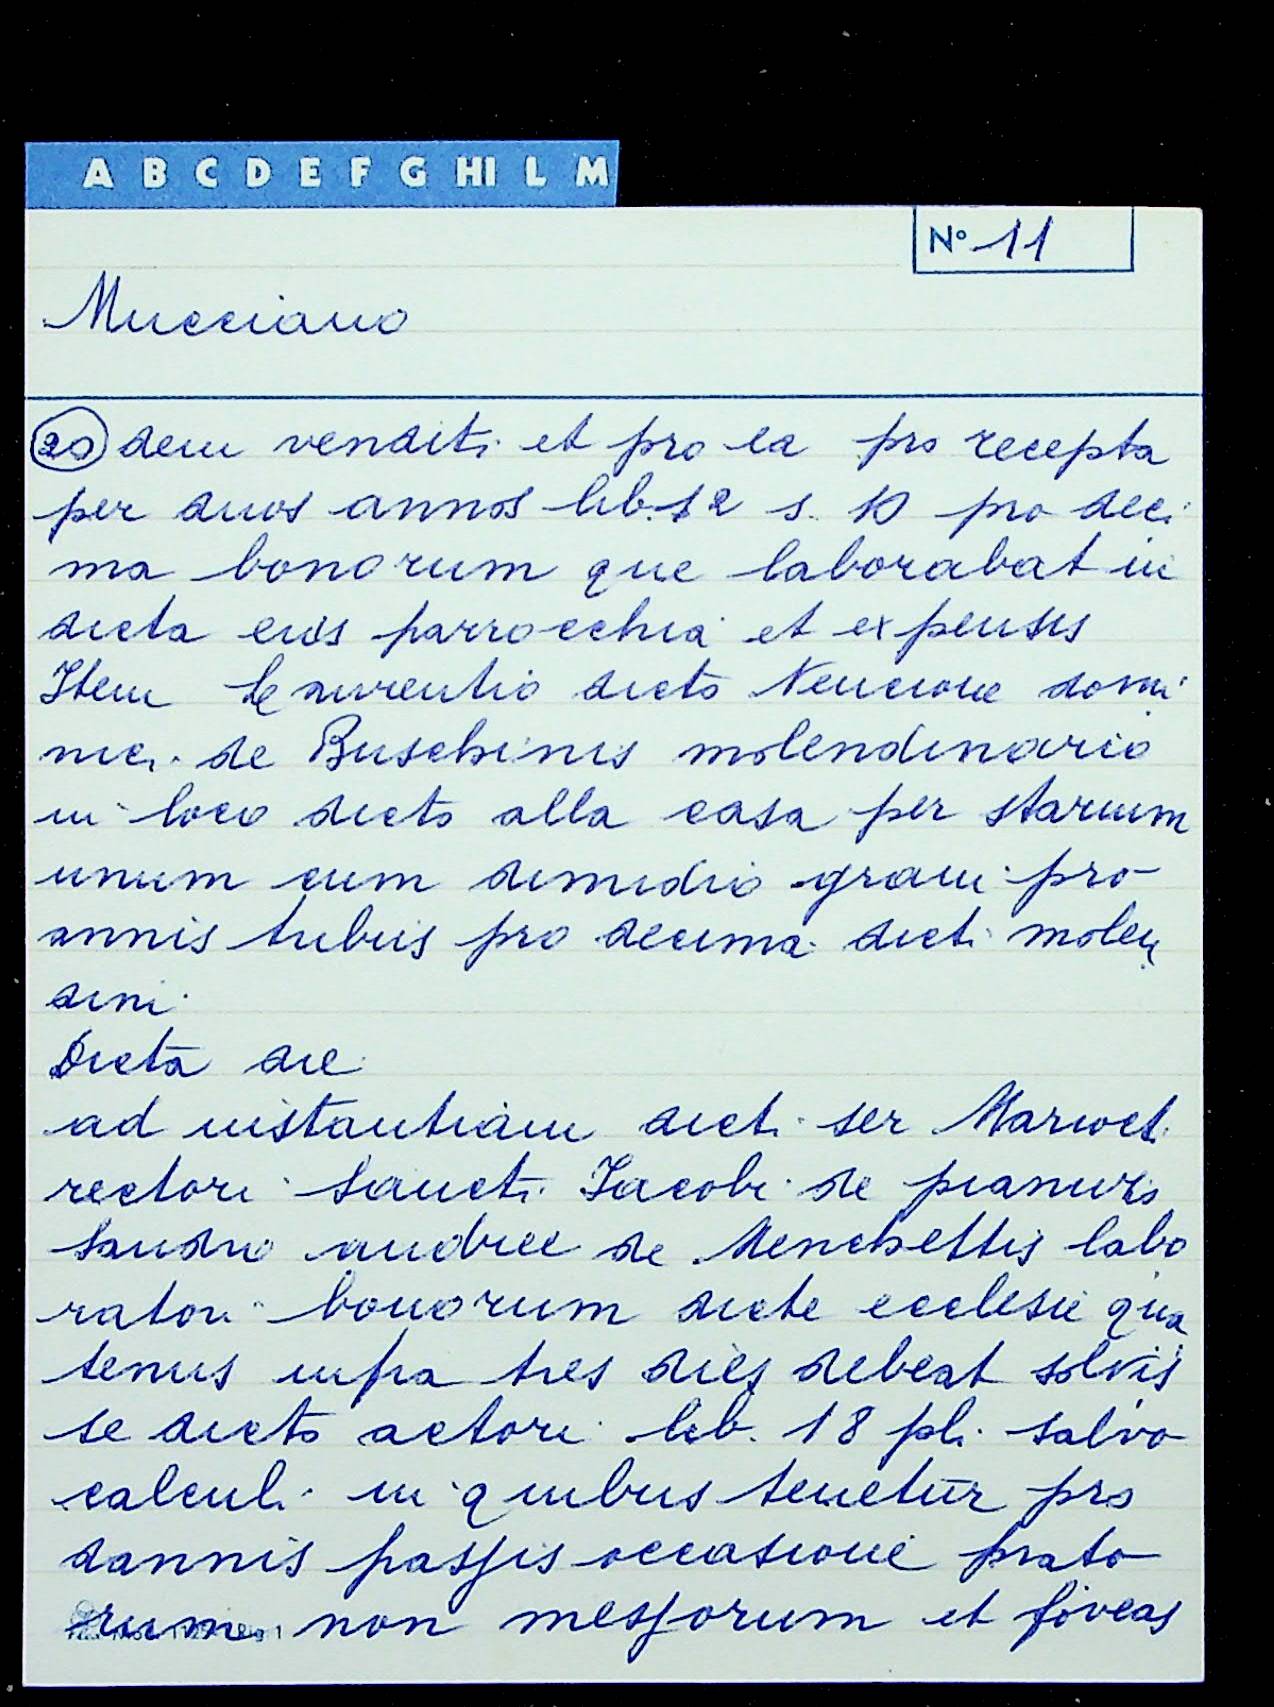 A B C D E F G HI L M
N° 11
Mucciano
20 dem venditi et pro ea pro recepta
per duos annos lib. 12 s. 10 pro deci
ma bonorum que laborabat in
dicta eius parrocchia et expensis
Item Laurentio dicto Nencione domi
nici de Buschinis molendinario
in loco dicto alla casa per starium
unum cum dimidio grani pro
annis tribus pro decima dicti molen
dini
Dicta die
ad instantiam dicti ser Marioct
rectori Sancti Jacobi de
Sandro andree de Menchettis labo
ratori bonorum dicte ecclesie qua
tenus infra tres dies debeat solvis
se dicto actori lib. 18 pli. salvo
calculi in quibus tenetur pro
dannis passis occasione prato
rum non messorum et foveas